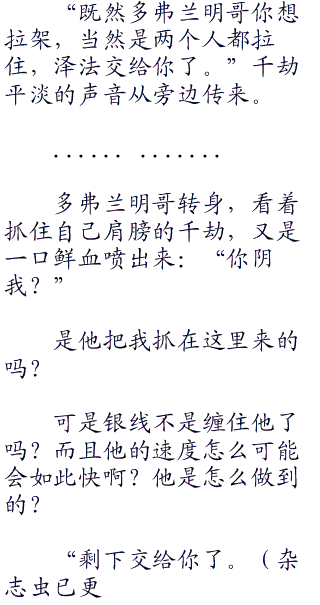 “既然多弗兰明哥你想
拉架，当然是两个人都拉
住，泽法交给你了。”千劫
平淡的声音从旁边传来。
······ ·······
多弗兰明哥转身，看着
抓住自己肩膀的千劫，又是
一口鲜血喷出来：“你阴
我？”
是他把我抓在这里来的
吗？
可是银线不是缠住他了
吗？而且他的速度怎么可能
会如此快啊？他是怎么做到
的？
“剩下交给你了。（杂
志虫已更